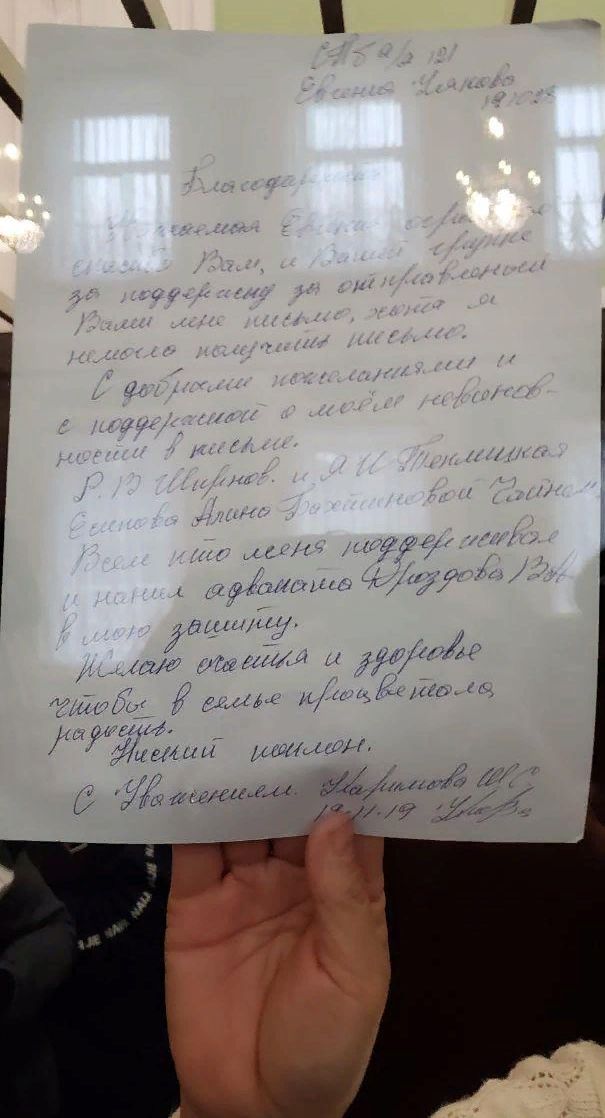 СПб а/я 121
Евгения
Благодарность
Уважаемая
спасибо Вам, и Вашей группе
за поддержку за отправленый
Вами мне письмо, хотя я
немогла получить письмо.
С добрыми пожеланиями и
с поддержкой о моём невинов-
ности в письме.
Р. В Ширнов. и Я И Теплицкая
Есипова Алина Бахтиновой
Всем кто меня поддерживал
и нанил адваката Дроздова ВА
в мою защиту.
Желаю счастья и здоровье
чтобы в семье процветала
радость.
Ниский поклон.
С Уважением. Каримова ШС
19.11.19